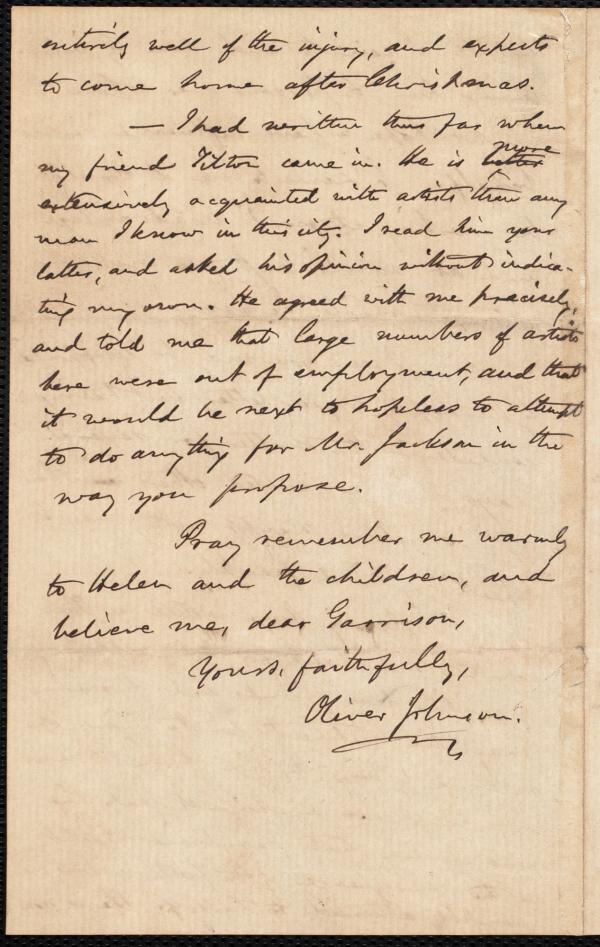 entirely well of the injury, and expects
to come home after Christmas.
— I had written thus far when
my friend Tilton came in. He is better more
extensively acquainted with artists than any
man I know in this city. I read him your
letter, and asked his opinion without indica-
ting my own. He agreed with me precisely,
and told me that large numbers of artists
here were out of employment, and that
it would be next to hopeless to attempt
to do anything for Mr. Jackson in the
way you propose.
Pray remember me warmly
to Helen and the children, and
believe me, dear Garrison,
Yours, faithfully,
Oliver Johnson.